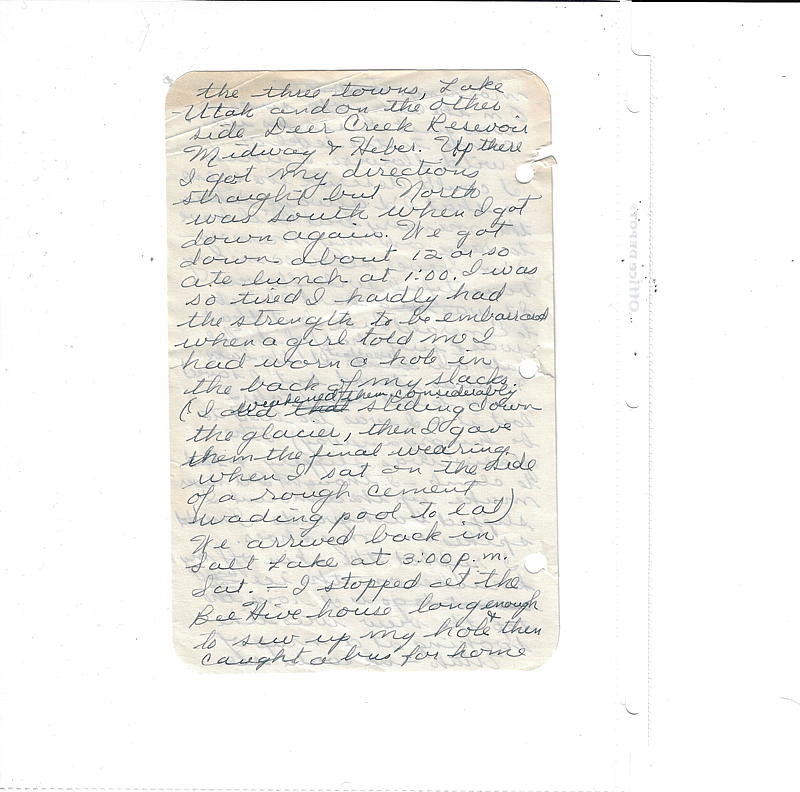 the three towns, Lake
Utah and on the other
side Deer Creek Resevoir
Midway & Heber. Up there
I got my directions
straight but North
was south when I got
down again. We got
down about 12 or so
ate lunch at 1:00. I was
so tired I hardly had
the strength to be embarrased
when a girl told me I
had worn a hole in
the back of my slacks.
weakened them considerably
(I did that sliding down
the glacier, then I gave
them the final wearing
when I sat on the side
of a rough cement
wading pool to eat)
We arrived back in
Salt Lake at 3:00 p.m.
Sat. – I stopped at the
Bee Hive house long enough
to sew up my hole & then
caught a bus for home
Office Depot